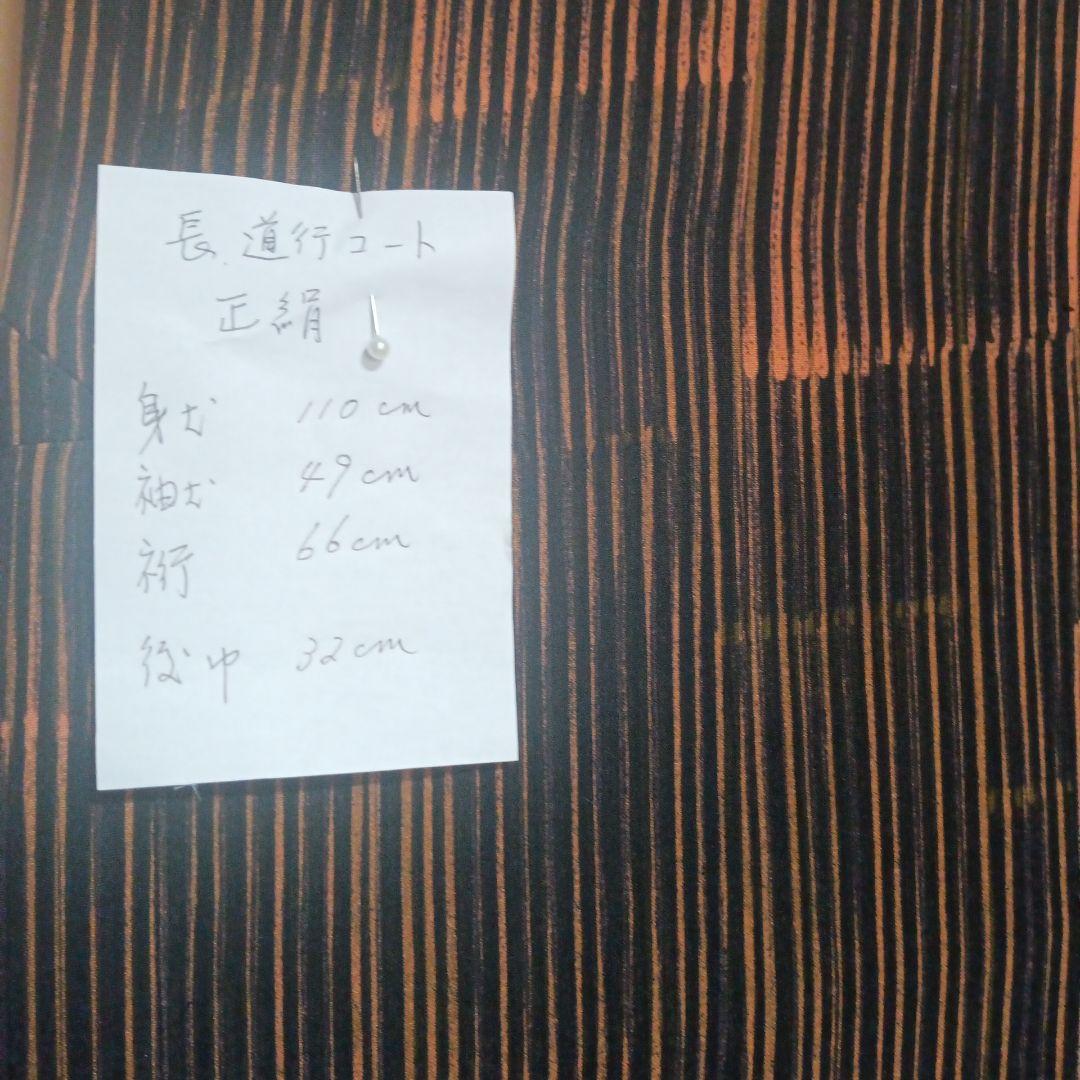 長.道行コート
正絹
身丈 110cm
袖丈 49cm
裄 66cm
後巾 32cm